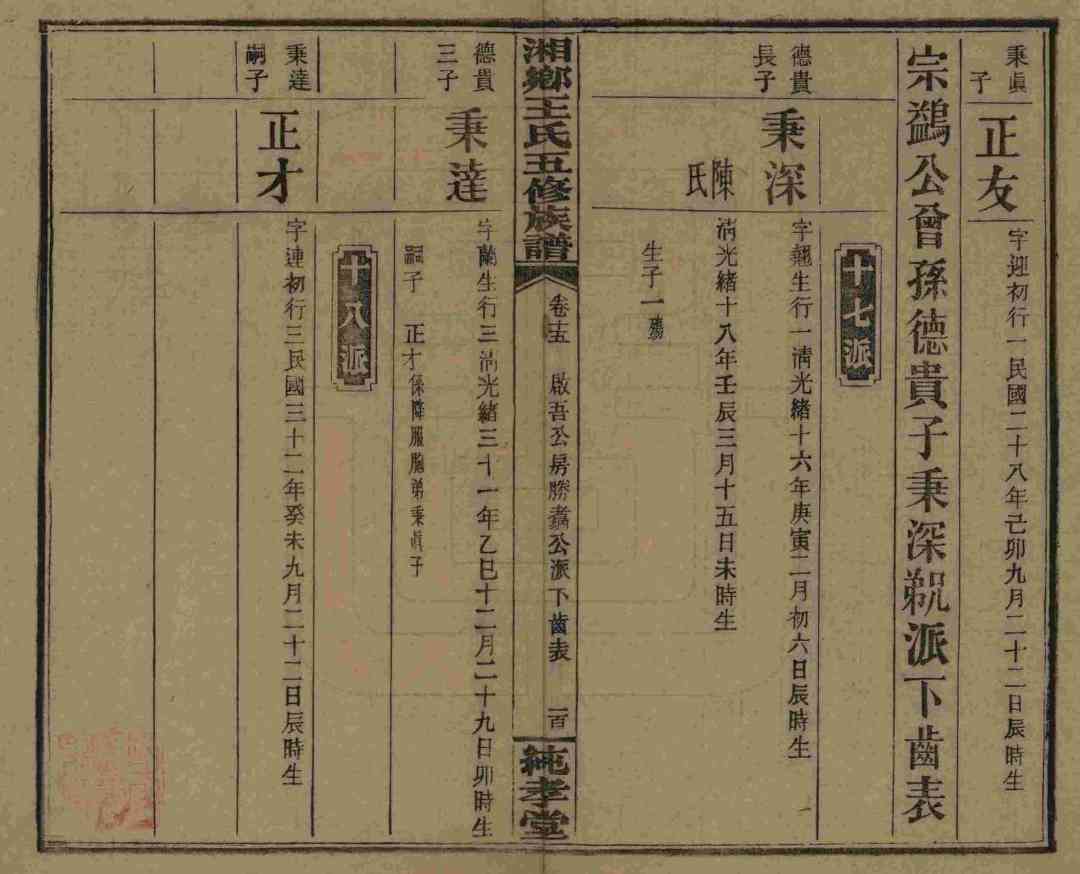 秉眞子
正友
字迎初行一民國二十八年己卯九月二十二日辰時生
宗鷀公曾孫德貴子秉深貎派下齒表
十七派
德貴長子
秉深
字翹生行一清光緒十六年庚寅二月初六日辰時生
陳氏
清光緒十八年壬辰三月十五日未時生
生子一殤
湘鄉王氏五修族譜
卷十五
啟吾公房勝翥公派下齒表
一百
純孝堂
德貴三子
秉達
字蘭生行三清光緒三十一年乙巳十二月二十九日卯時生
嗣子 正才係降服胞弟秉眞子
十八派
秉達嗣子
正才
字連初行三民國三十二年癸未九月二十二日辰時生